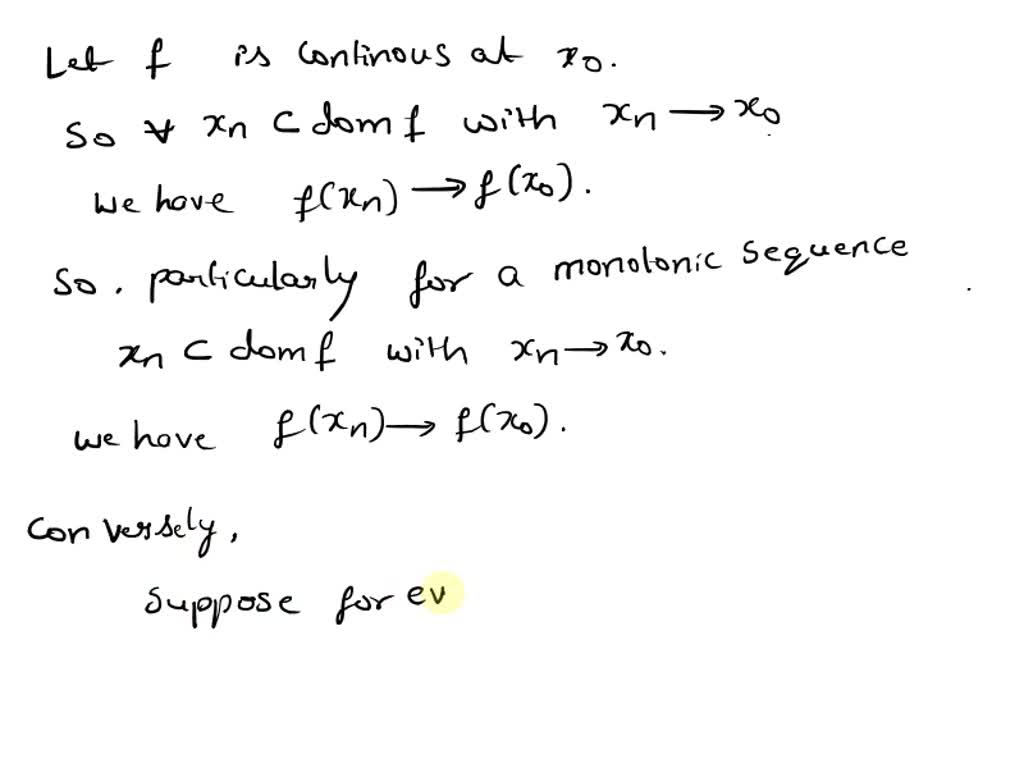 Let f is continous at x₀.
So ∀ xₙ ⊂ dom f with xₙ → x₀
we have f(xₙ) → f(x₀).
So. particularly for a monotonic sequence
xₙ ⊂ dom f with xₙ → x₀.
we have f(xₙ) → f(x₀).
Conversely,
Suppose for ev